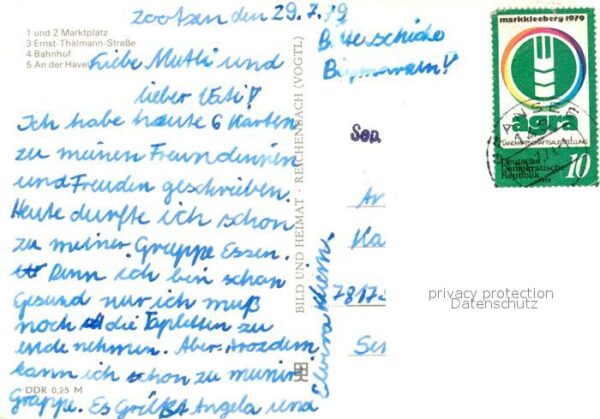 zootzen den 29.7.79
1 und 2 Marktplatz
3 Ernst-Thälmann-Straße
4 Bahnhof
5 An der Havel
Liebe Mutti und
lieber Vati!
Ich habe heute 6 Karten
zu meinen Freundinnen
und Freuden geschrieben.
Heute durfte ich schon
zu meiner Gruppe Essen.
Denn ich bin schon
Gesund nur ich muß
noch die Tapletten zu
ende nehmen. Aber trozdem
kann ich schon zu meiner
Grappe. Es Grüßt Angela und
Elvira
DDR 0,25 M
BILD UND HEIMAT · REICHENBACH (VOGTL)
Bitte schicke
Bigmarken!
Sen
An
Ka
7817
Sen
markkleeberg 1979
agra
LANDWIRTSCHAFTSAUSSTELLUNG
Deutsche
Demokratische
Republik
10
privacy protection
Datenschutz